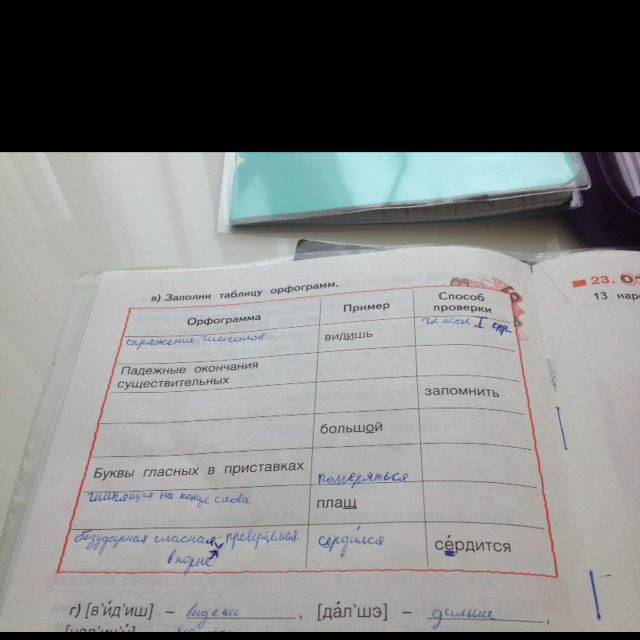 в) Заполни таблицу орфограмм.
Орфограмма Пример Способ проверки
спряжение глаголов видишь гл. искл. I спр.
Падежные окончания существительных
запомнить
большой
Буквы гласных в приставках померяться
шипящая на конце слова плащ
безударная гласная, проверяемая в корне сердился се́рдится
г) [в'и́д'иш] – видешь, [да́л'шэ] – дальше,
23.
13 нар